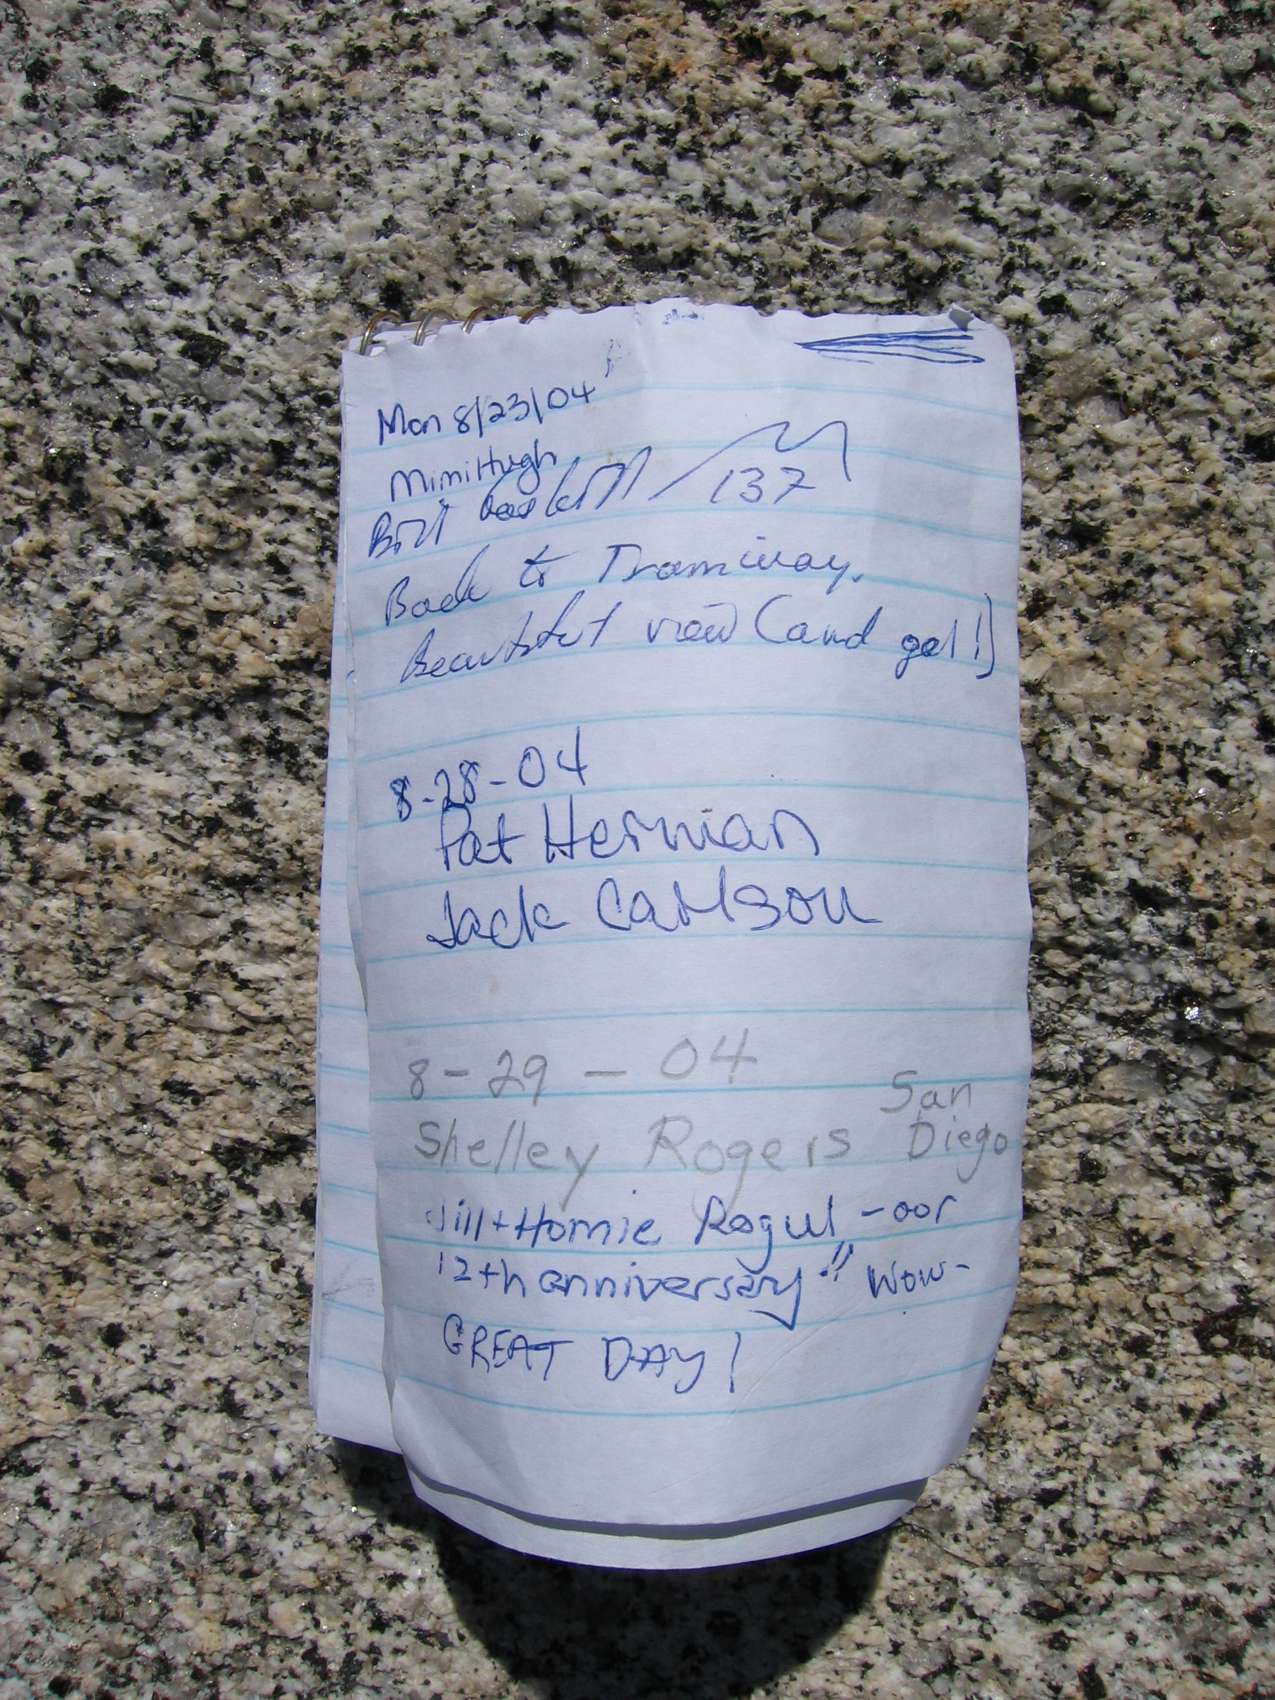 Mon 8/23/04
Mimi Hugh
Bill 137
Back to Tramway.
Beautiful view (and gal!)
8-28-04
Pat Herman
Jack Carlson
8-29-04
San
Shelley Rogers Diego
Jill + Homie - oor
12th anniversary!! Wow-
GREAT DAY!